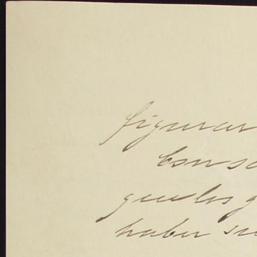 figurar
Con s
que los g
haber su